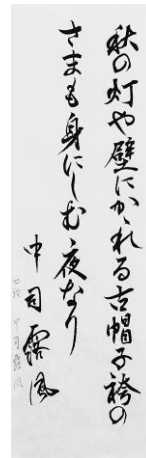 秋の灯や壁にかゝれる古帽子袴の
さまも身にしむ夜なり
中司露風
中司露風